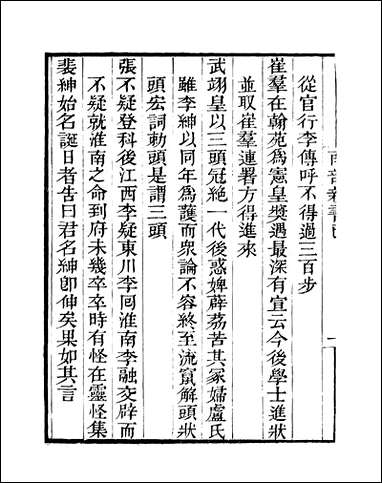 從官行李傳呼不得過三百步
崔羣在翰苑爲憲皇奬遇最深有宣云今後學士進狀
並取崔羣連署方得進來
武翊皇以三頭冠絶一代後惑婢薛荔苦其冢婦盧氏
雖李紳以同年爲護而衆論不容終至流竄解頭狀
頭宏詞勅頭是謂三頭
張不疑登科後江西李疑東川李回淮南李融交辟而
不疑就淮南之命到府未幾卒卒時有怪在靈怪集
裴紳始名誕日者告曰君名紳卽伸矣果如其言